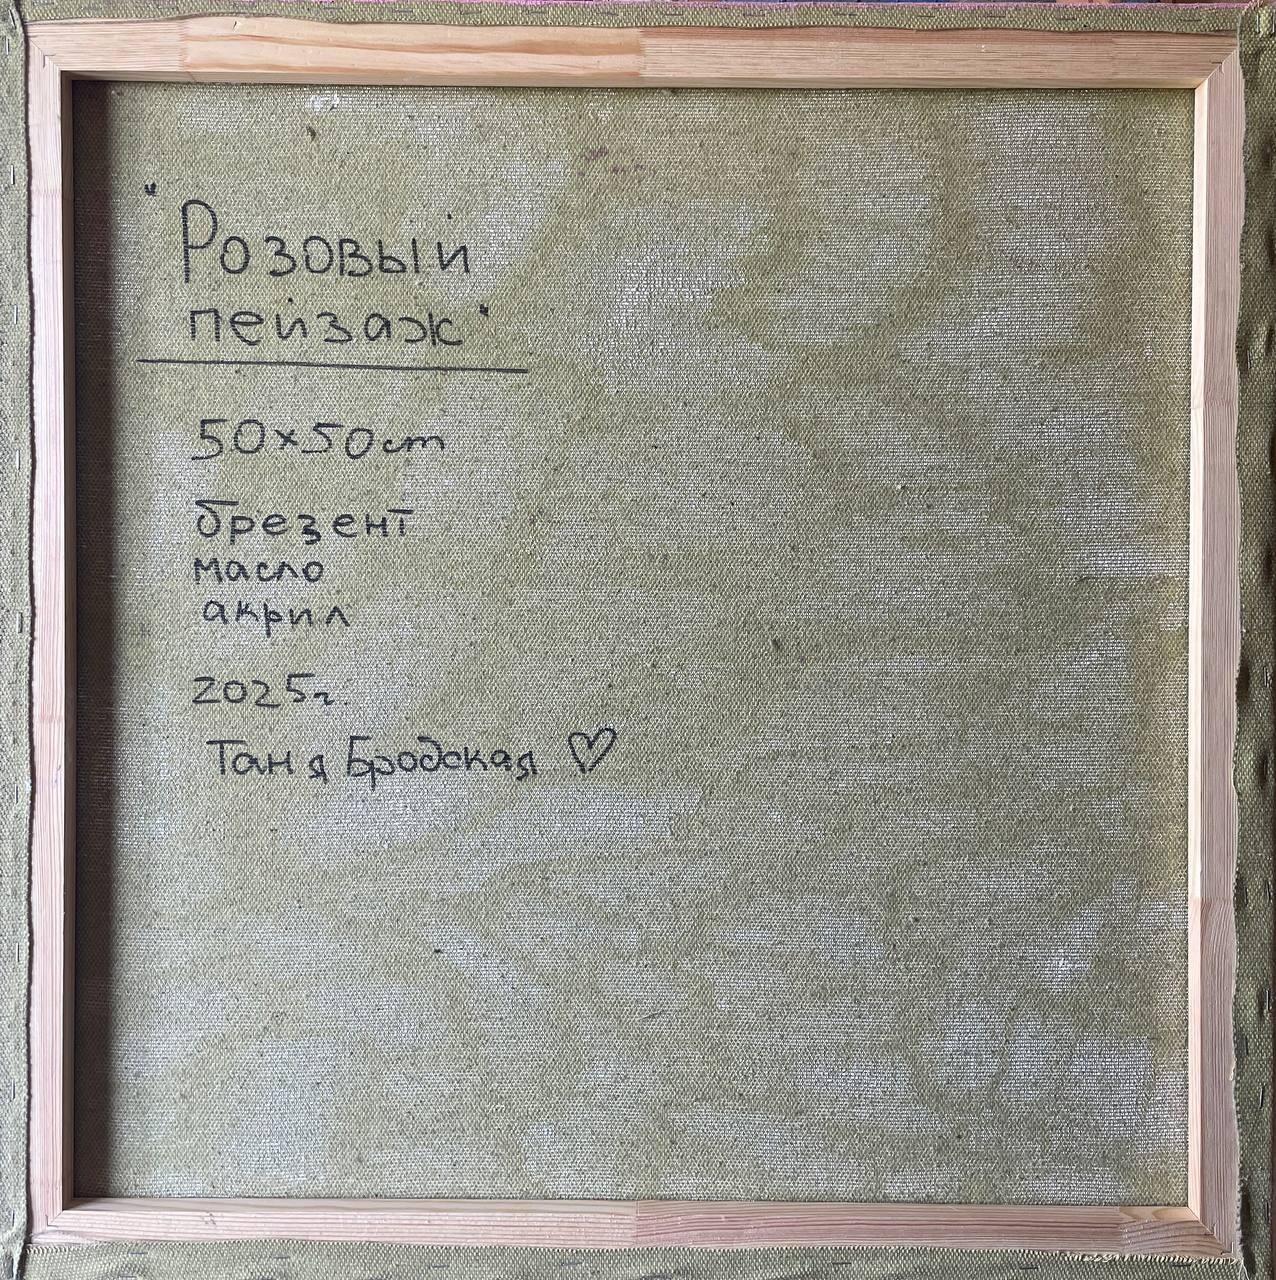 "Розовый
пейзаж"
50x50cm
брезент
масло
акрил
2025г.
Таня Бродская ♡